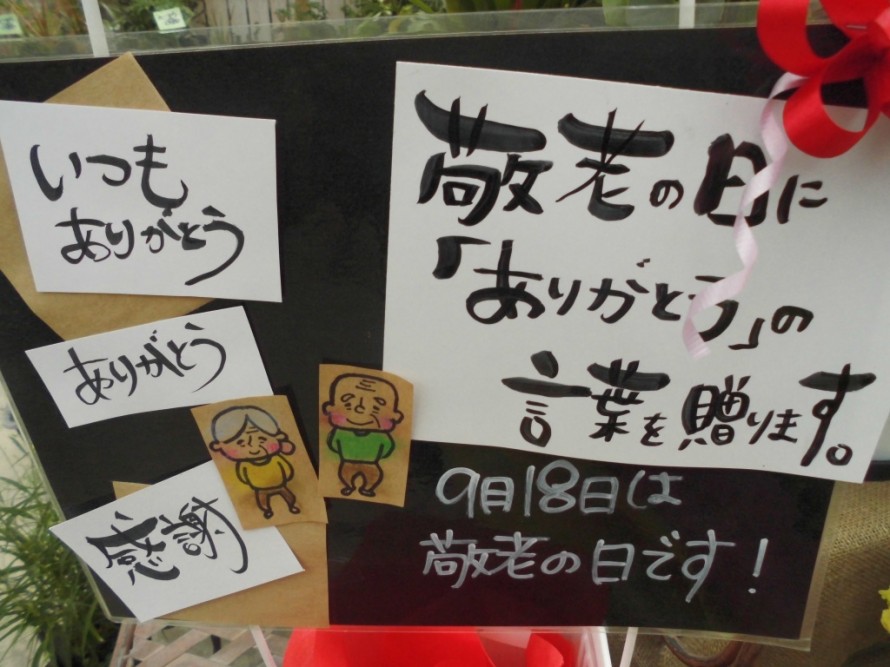 いつも
ありがとう
ありがとう
感謝
敬老の日に
「ありがとう」の
言葉を贈ります。
9月18日は
敬老の日です!